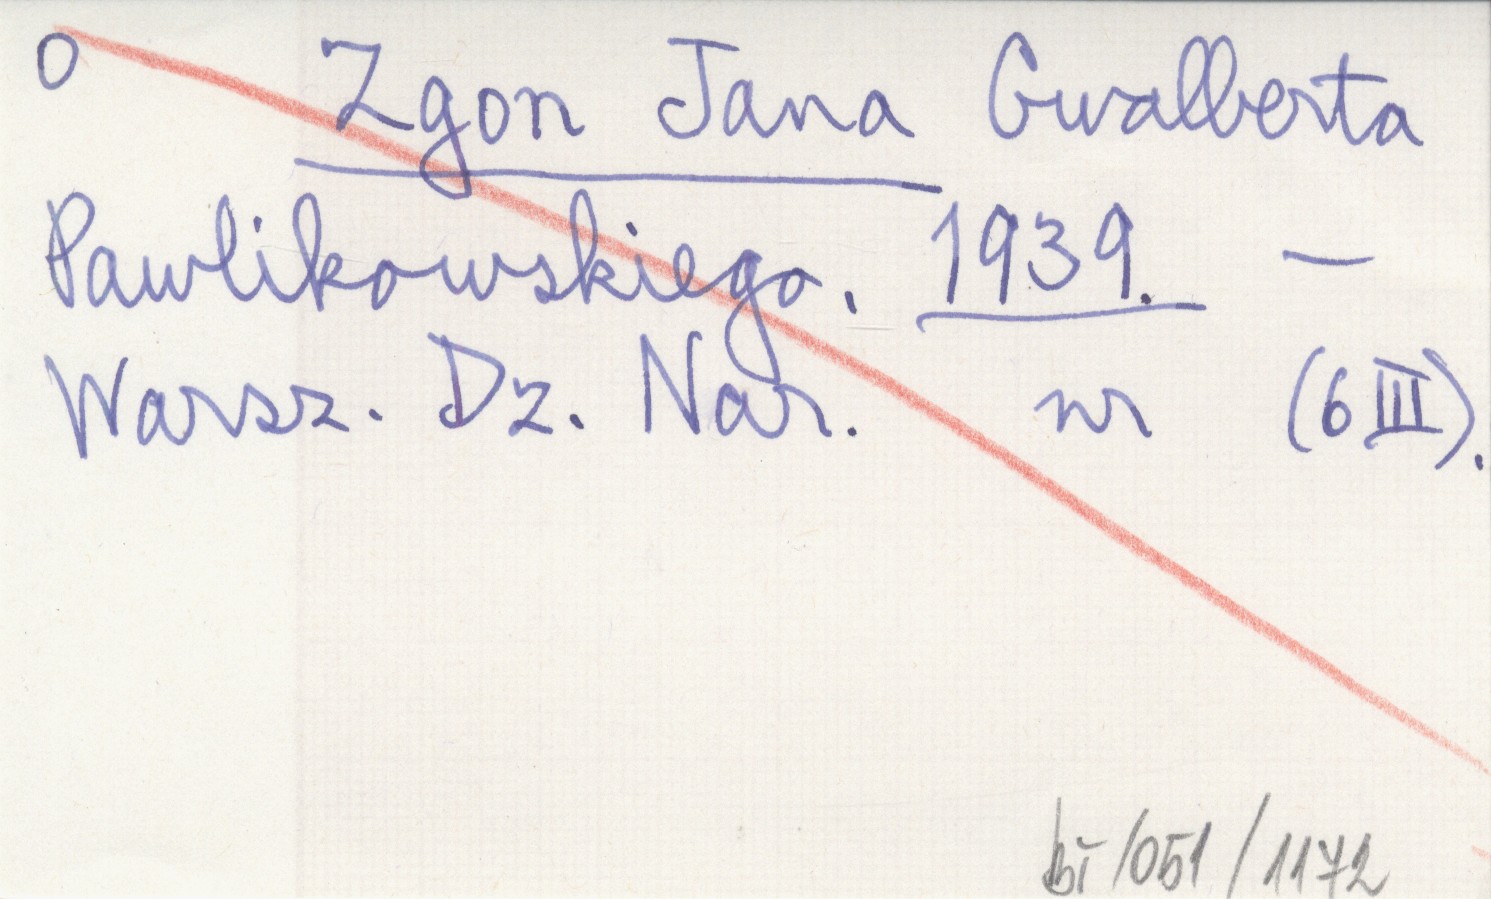 0 Zgon Jana Gwalberta
Pawlikowskiego. 1939. —
Warsz. Dz. Nar. nr (6 III).
bī/051/1172